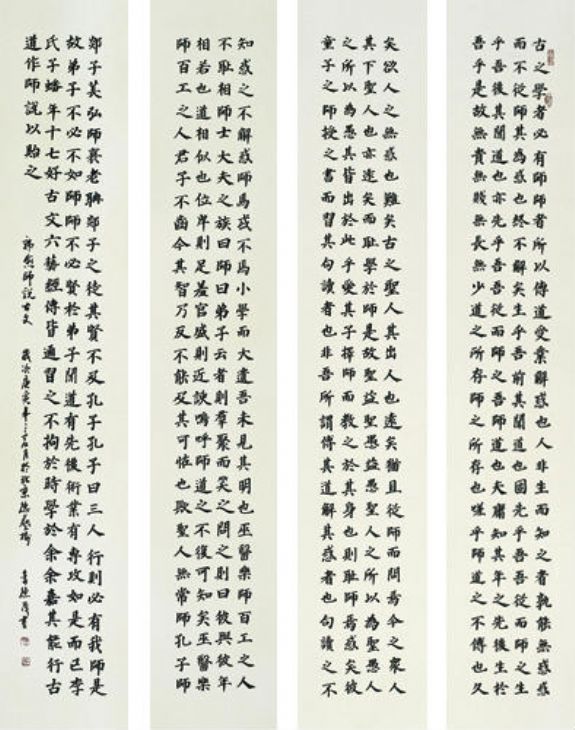 古之學者必有師師者所以傳道受業解惑也人非生而知之者孰能無惑惑
而不從師其為惑也終不解矣生乎吾前其聞道也固先乎吾吾從而師之生
乎吾後其聞道也亦先乎吾吾從而師之吾師道也夫庸知其年之先後生於
吾乎是故無貴無賤無長無少道之所存師之所存也嗟乎師道之不傳也久
矣欲人之無惑也難矣古之聖人其出人也遠矣猶且從師而問焉今之眾人
其下聖人也亦遠矣而恥學於師是故聖益聖愚益愚聖人之所以為聖愚人
之所以為愚其皆出於此乎愛其子擇師而教之於其身也則恥師焉惑矣彼
童子之師授之書而習其句讀者也非吾所謂傳其道解其惑者也句讀之不
知惑之不解惑師焉或不焉小學而大遺吾未見其明也巫醫樂師百工之人
不恥相師士大夫之族曰師曰弟子云者則羣聚而笑之問之則曰彼與彼年
相若也道相似也位卑則足羞官盛則近諛嗚呼師道之不復可知矣巫醫樂
師百工之人君子不齒今其智乃反不能及其可怪也歟聖人無常師孔子師
郯子萇弘師襄老聃郯子之徒其賢不及孔子孔子曰三人行則必有我師是
故弟子不必不如師師不必賢於弟子聞道有先後術業有專攻如是而已李
氏子蟠年十七好古文六藝經傳皆通習之不拘於時學於余余嘉其能行古
道作師說以貽之
韓愈師說古文 歲次庚寅年 月於北京 書